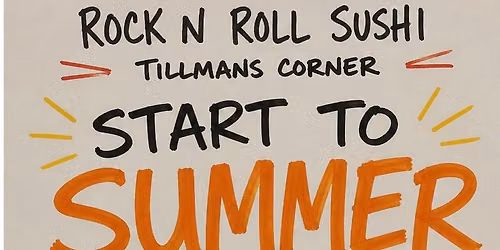 ROCK N ROLL SUSHI
TILLMANS CORNER
START TO
SUMMER